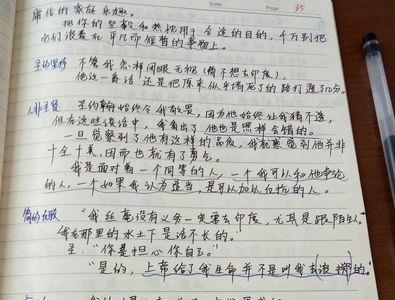 Date 35
席传的家庭乐趣。
把你的坚毅和热忱用于合适的目的，千万别把
它们浪费在平凡而短暂的事物上。
圣的坚持 不管我怎样闭眼无视（简不想去印度），
他这一番话，还是把原来似乎堵死了的路打通了几分。
人非圣贤 圣约翰始终令我敬畏，因为他始终让我猜不透。
但在这些谈话中，我看出了他也是照样会错的。
一旦觉察到了他有这样的品质，我就感觉到他并非
十全十美，因而也就有了勇气。
我是面对着一个同等的人，一个我可以和他争论
的人，一个如果我认为适当，是可以加以反抗的人。
简的反驳 “我丝毫没有义务一定要去印度，尤其是跟陌生人。”
我在那里的水土下是活不长的。”
圣：“你是担心你自己。”
“是的，上帝给了我生命并不是叫我去浪掷的。”